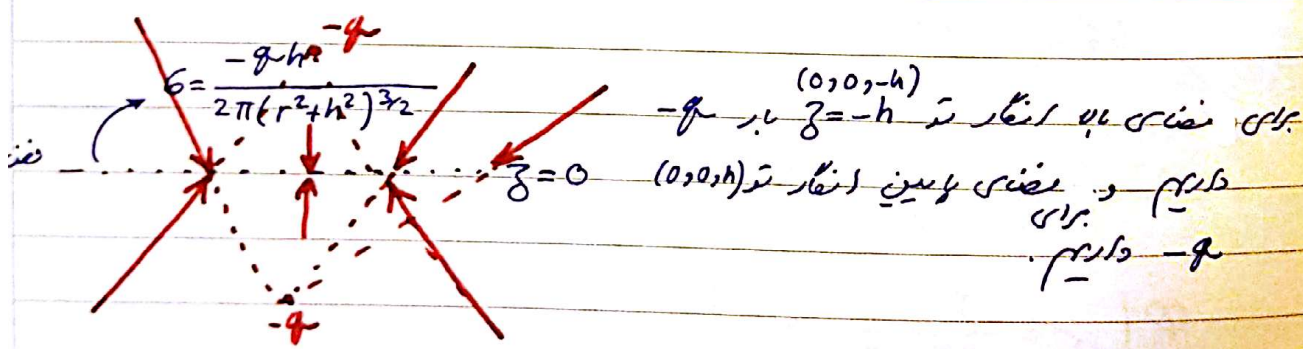 -q
σ = -qh / 2π(r²+h²)^3/2
(0,0,-h)
برای فضای بالا انگار تو z=-h بار -q
داریم و برای فضای پایین انگار تو (0,0,h)
-q داریم.
z=0
-q